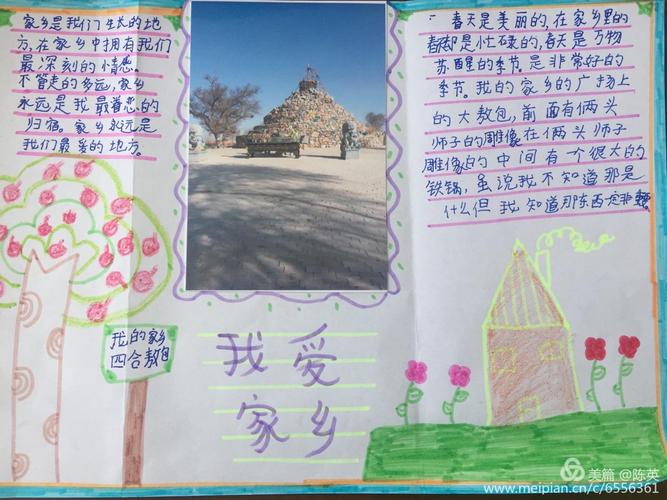 家乡是我们生长的地
方,在家乡中拥有我们
最深刻的情感。
不管走的多远,家乡
永远是我最眷恋的
归宿。家乡永远是
我们最爱的地方。
一春天是美丽的,在家乡里的
春却是忙碌的,春天是万物
苏醒的季节。是非常好的
季节。我的家乡的广场上
的大敖包,前面有俩头
师子的雕像在俩头师子
雕像的中间有一个很大的
铁锅,虽说我不知道那是
什么但我知道那东西定非
我的家乡
四合敖包
我爱
家乡
美篇 @陈英
www.meipian.cn/c/6556361